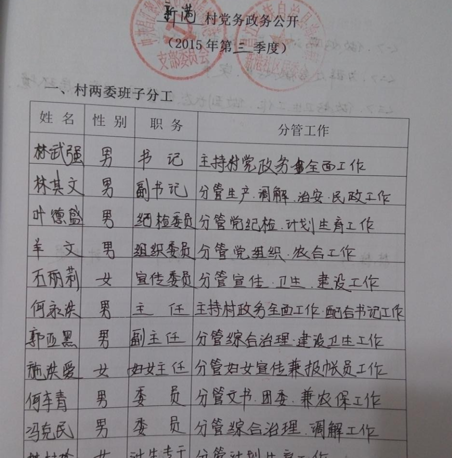 新满村党务政务公开
(2015年第三季度)
支部委员会
一、村两委班子分工
姓名 性别 职务 分管工作
林武强 男 书记 主持村党政务全面工作
林其文 男 副书记 分管生产.调解.治安.民政工作
叶德盛 男 纪检委员 分管党纪检.计划生育工作
羊文 男 组织委员 分管党组织.农合工作
石丽莉 女 宣传委员 分管宣传.卫生.建设工作
何永洪 男 主任 主持村政务全面工作.配合书记工作
郭亚黑 男 副主任 分管综合治理.建设卫生工作
施洪爱 女 妇女主任 分管妇女宣传兼报帐员工作
何李青 男 委员 分管文书.团委.兼农保工作
冯克民 男 委员 分管综合治理.调解工作
女 计生专干 分管计划生育工作